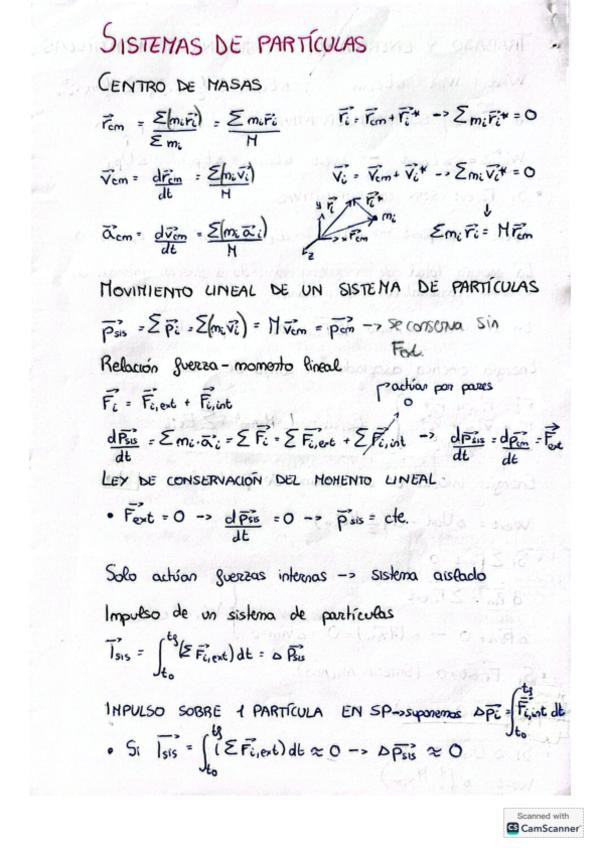 SISTEMAS DE PARTÍCULAS
CENTRO DE MASAS
r⃗cm = Σ(mi r⃗i) / Σ mi = Σ mi r⃗i / M    r⃗i = r⃗cm + r⃗i* -> Σ mi r⃗i* = 0
v⃗cm = dr⃗cm / dt = Σ(mi v⃗i) / M    v⃗i = v⃗cm + v⃗i* -> Σ mi v⃗i* = 0
y r⃗i r⃗i* mi
a⃗cm = dv⃗cm / dt = Σ(mi a⃗i) / M    z x r⃗cm    ↓ Σ mi r⃗i = M r⃗cm
MOVIMIENTO LINEAL DE UN SISTEMA DE PARTÍCULAS
p⃗sis = Σ p⃗i = Σ(mi v⃗i) = M v⃗cm = p⃗cm -> se conserva sin
Fext.
Relación fuerza - momento lineal
actúan por pares
F⃗i = F⃗i,ext + F⃗i,int    0
dp⃗sis / dt = Σ mi · a⃗i = Σ F⃗i = Σ F⃗i,ext + Σ F⃗i,int -> dp⃗sis / dt = dp⃗cm / dt = F⃗ext
LEY DE CONSERVACIÓN DEL MOMENTO LINEAL:
• F⃗ext = 0 -> dp⃗sis / dt = 0 -> p⃗sis = cte.
Solo actúan fuerzas internas -> sistema aislado
Impulso de un sistema de partículas
I⃗sis = ∫t0^tf (Σ F⃗i,ext) dt = Δ p⃗sis
IMPULSO SOBRE 1 PARTÍCULA EN SP -> suponemos Δp⃗i = ∫t0^tf F⃗i,int dt
• Si I⃗sis = ∫t0^tf (Σ F⃗i,ext) dt ≈ 0 -> Δp⃗sis ≈ 0
Scanned with
CS CamScanner